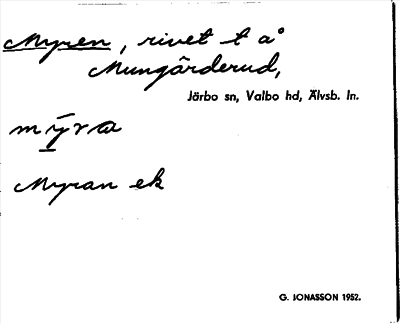 Myren, rivet t a°
Mungårderud,
Järbo sn, Valbo hd, Älvsb. ln.
mýra
Myran ek
G. JONASSON 1952.